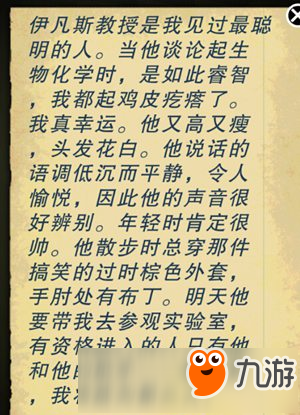 伊凡斯教授是我见过最聪
明的人。当他谈论起生
物化学时，是如此睿智
，我都起鸡皮疙瘩了。
我真幸运。他又高又瘦
，头发花白。他说话的
语调低沉而平静，令人
愉悦，因此他的声音很
好辨别。年轻时肯定很
帅。他散步时总穿那件
搞笑的过时棕色外套，
手肘处有布丁。明天他
要带我去参观实验室，
有资格进入的人只有他
和他
，我
九游